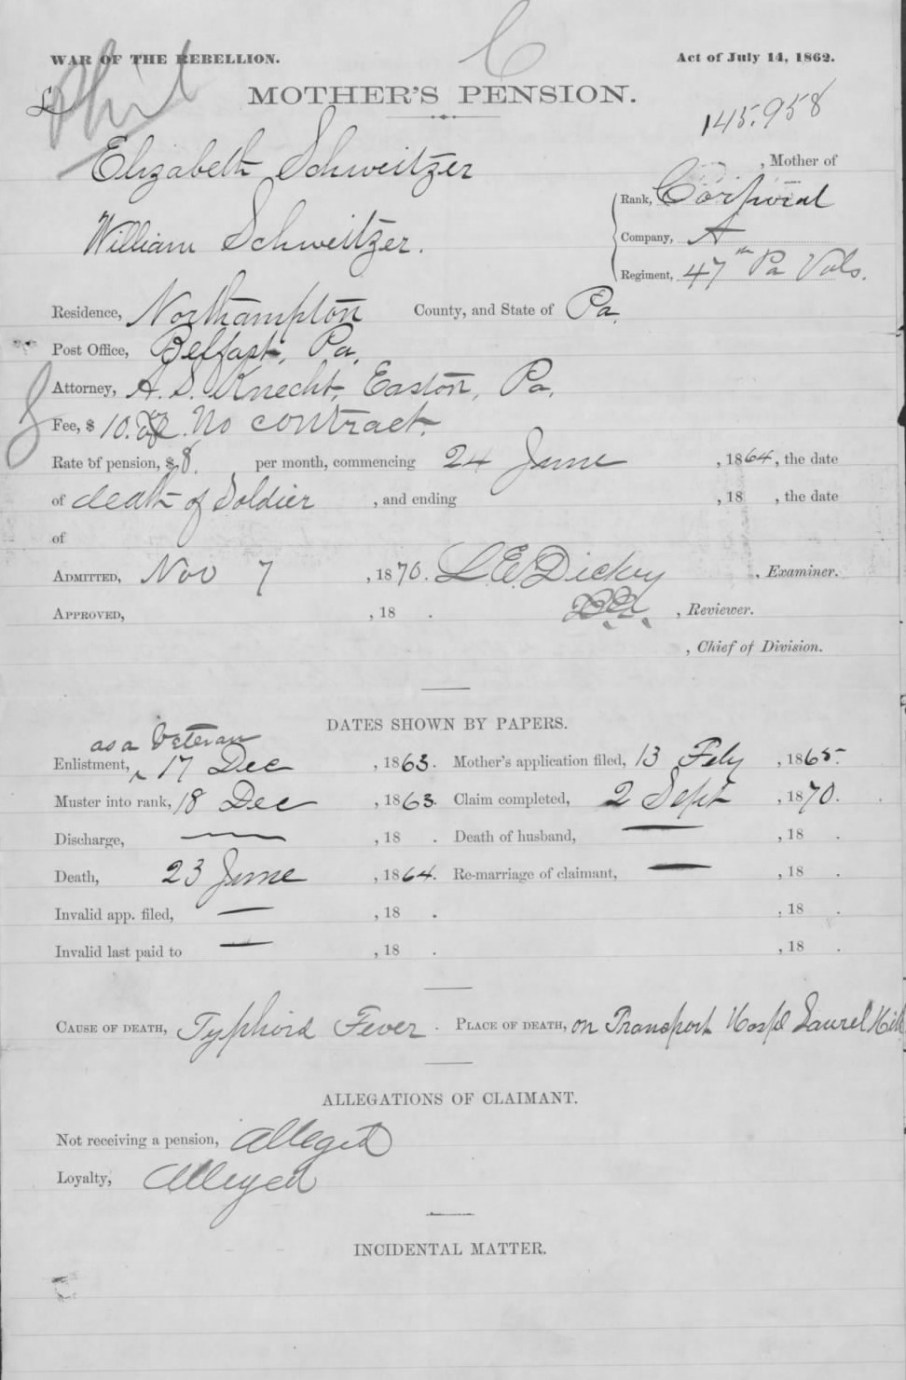 WAR OF THE REBELLION.
Act of July 14, 1862.
Phil
MOTHER'S PENSION.
145.958
Elizabeth Schweitzer
, Mother of
William Schweitzer.
Rank, Corporal
Company, A
Regiment, 47th Pa Vols.
Residence, Northampton County, and State of Pa.
Post Office, Belfast, Pa.
Attorney, A. S. Knecht, Easton, Pa.
Fee, $ 10. No contract.
Rate of pension, $8. per month, commencing 24 June, 1864, the date
of death of Soldier, and ending , 18 , the date
of
ADMITTED, Nov 7, 1870. L. E. Dickey, Examiner.
APPROVED, , 18 . , Reviewer.
, Chief of Division.
DATES SHOWN BY PAPERS.
as a Veteran
Enlistment, 17 Dec, 1863. Mother's application filed, 13 Feby, 1865.
Muster into rank, 18 Dec, 1863. Claim completed, 2 Sept, 1870.
Discharge, —, 18 . Death of husband, —, 18 .
Death, 23 June, 1864. Re-marriage of claimant, —, 18 .
Invalid app. filed, —, 18 . , 18 .
Invalid last paid to —, 18 . , 18 .
CAUSE OF DEATH, Typhoid Fever. PLACE OF DEATH, on Transport Hospl Laurel Hill
ALLEGATIONS OF CLAIMANT.
Not receiving a pension, alleged
Loyalty, Alleged
INCIDENTAL MATTER.